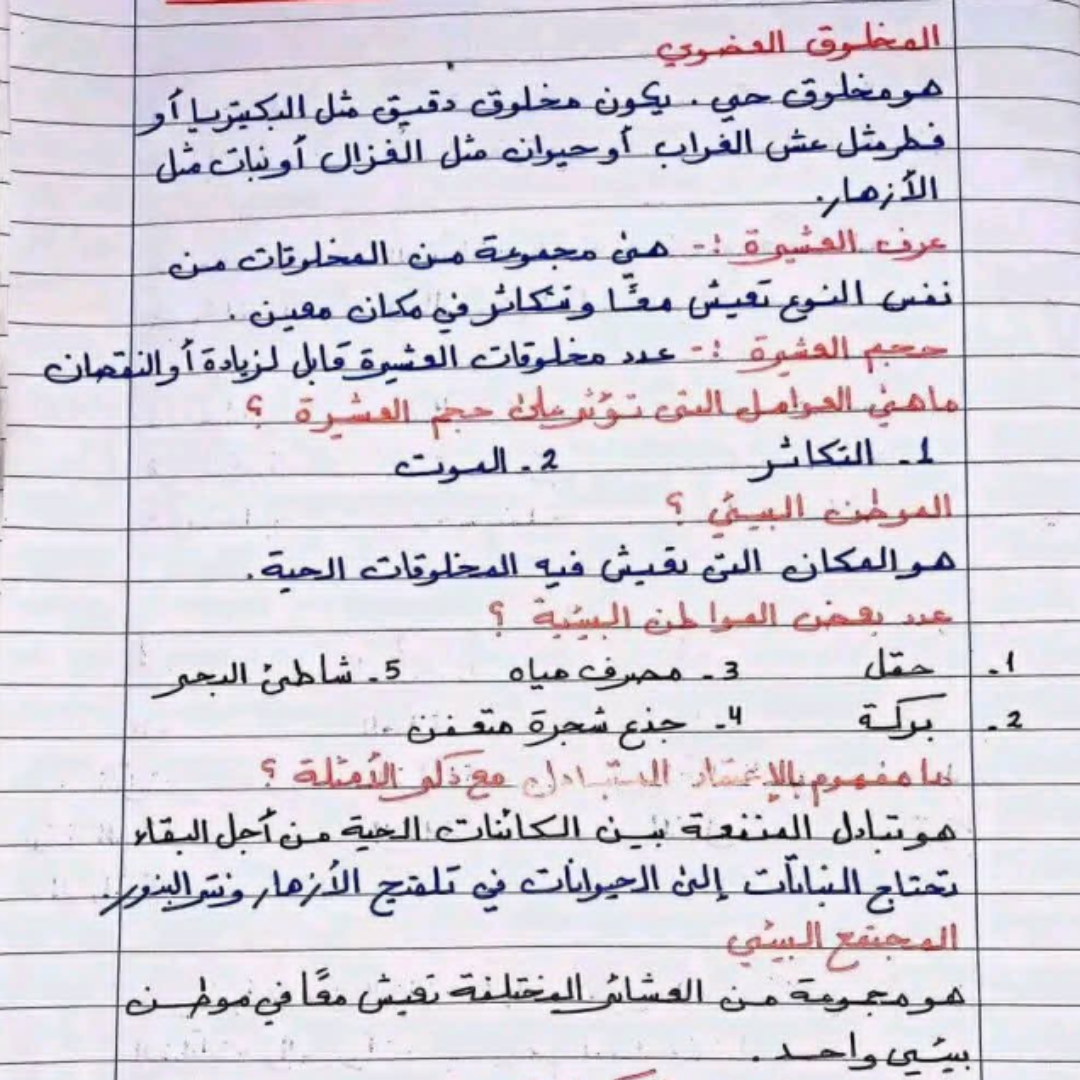 المخلوق العضوي
هو مخلوق حي . يكون مخلوق دقيق مثل البكيتريا أو
فطر مثل عش الغراب أو حيوان مثل الغزال أو نبات مثل
الأزهار .
عرف العشيرة :- هي مجموعة من المخلوقات من
نفس النوع تعيش معًا وتتكاثر في مكان معين .
حجم العشرة :- عدد مخلوقات العشيرة قابل لزيادة أو النقصان
ماهي العوامل التى تؤثر على حجم العشيرة ؟
1. التكاثر 2. الموت
الموطن البيئي ؟
هو المكان التى تعيش فيه المخلوقات الحية .
عدد بعض المواطن البيئية ؟
1. حقل 3. مصرف مياه 5. شاطئ البحر
2. بركة 4. جذع شجرة متعفن
ما مفهوم بالإعتماد المتبادل مع ذكر الأمثلة ؟
هو تبادل المنفعة بين الكائنات الحية من أجل البقاء
تحتاج النباتات إلى الحيوانات في تلقيح الأزهار ونثر البذور .
المجتمع البيئي
هو مجموعة من العشائر المختلفة تعيش معًا في موطن
بيئي واحد .